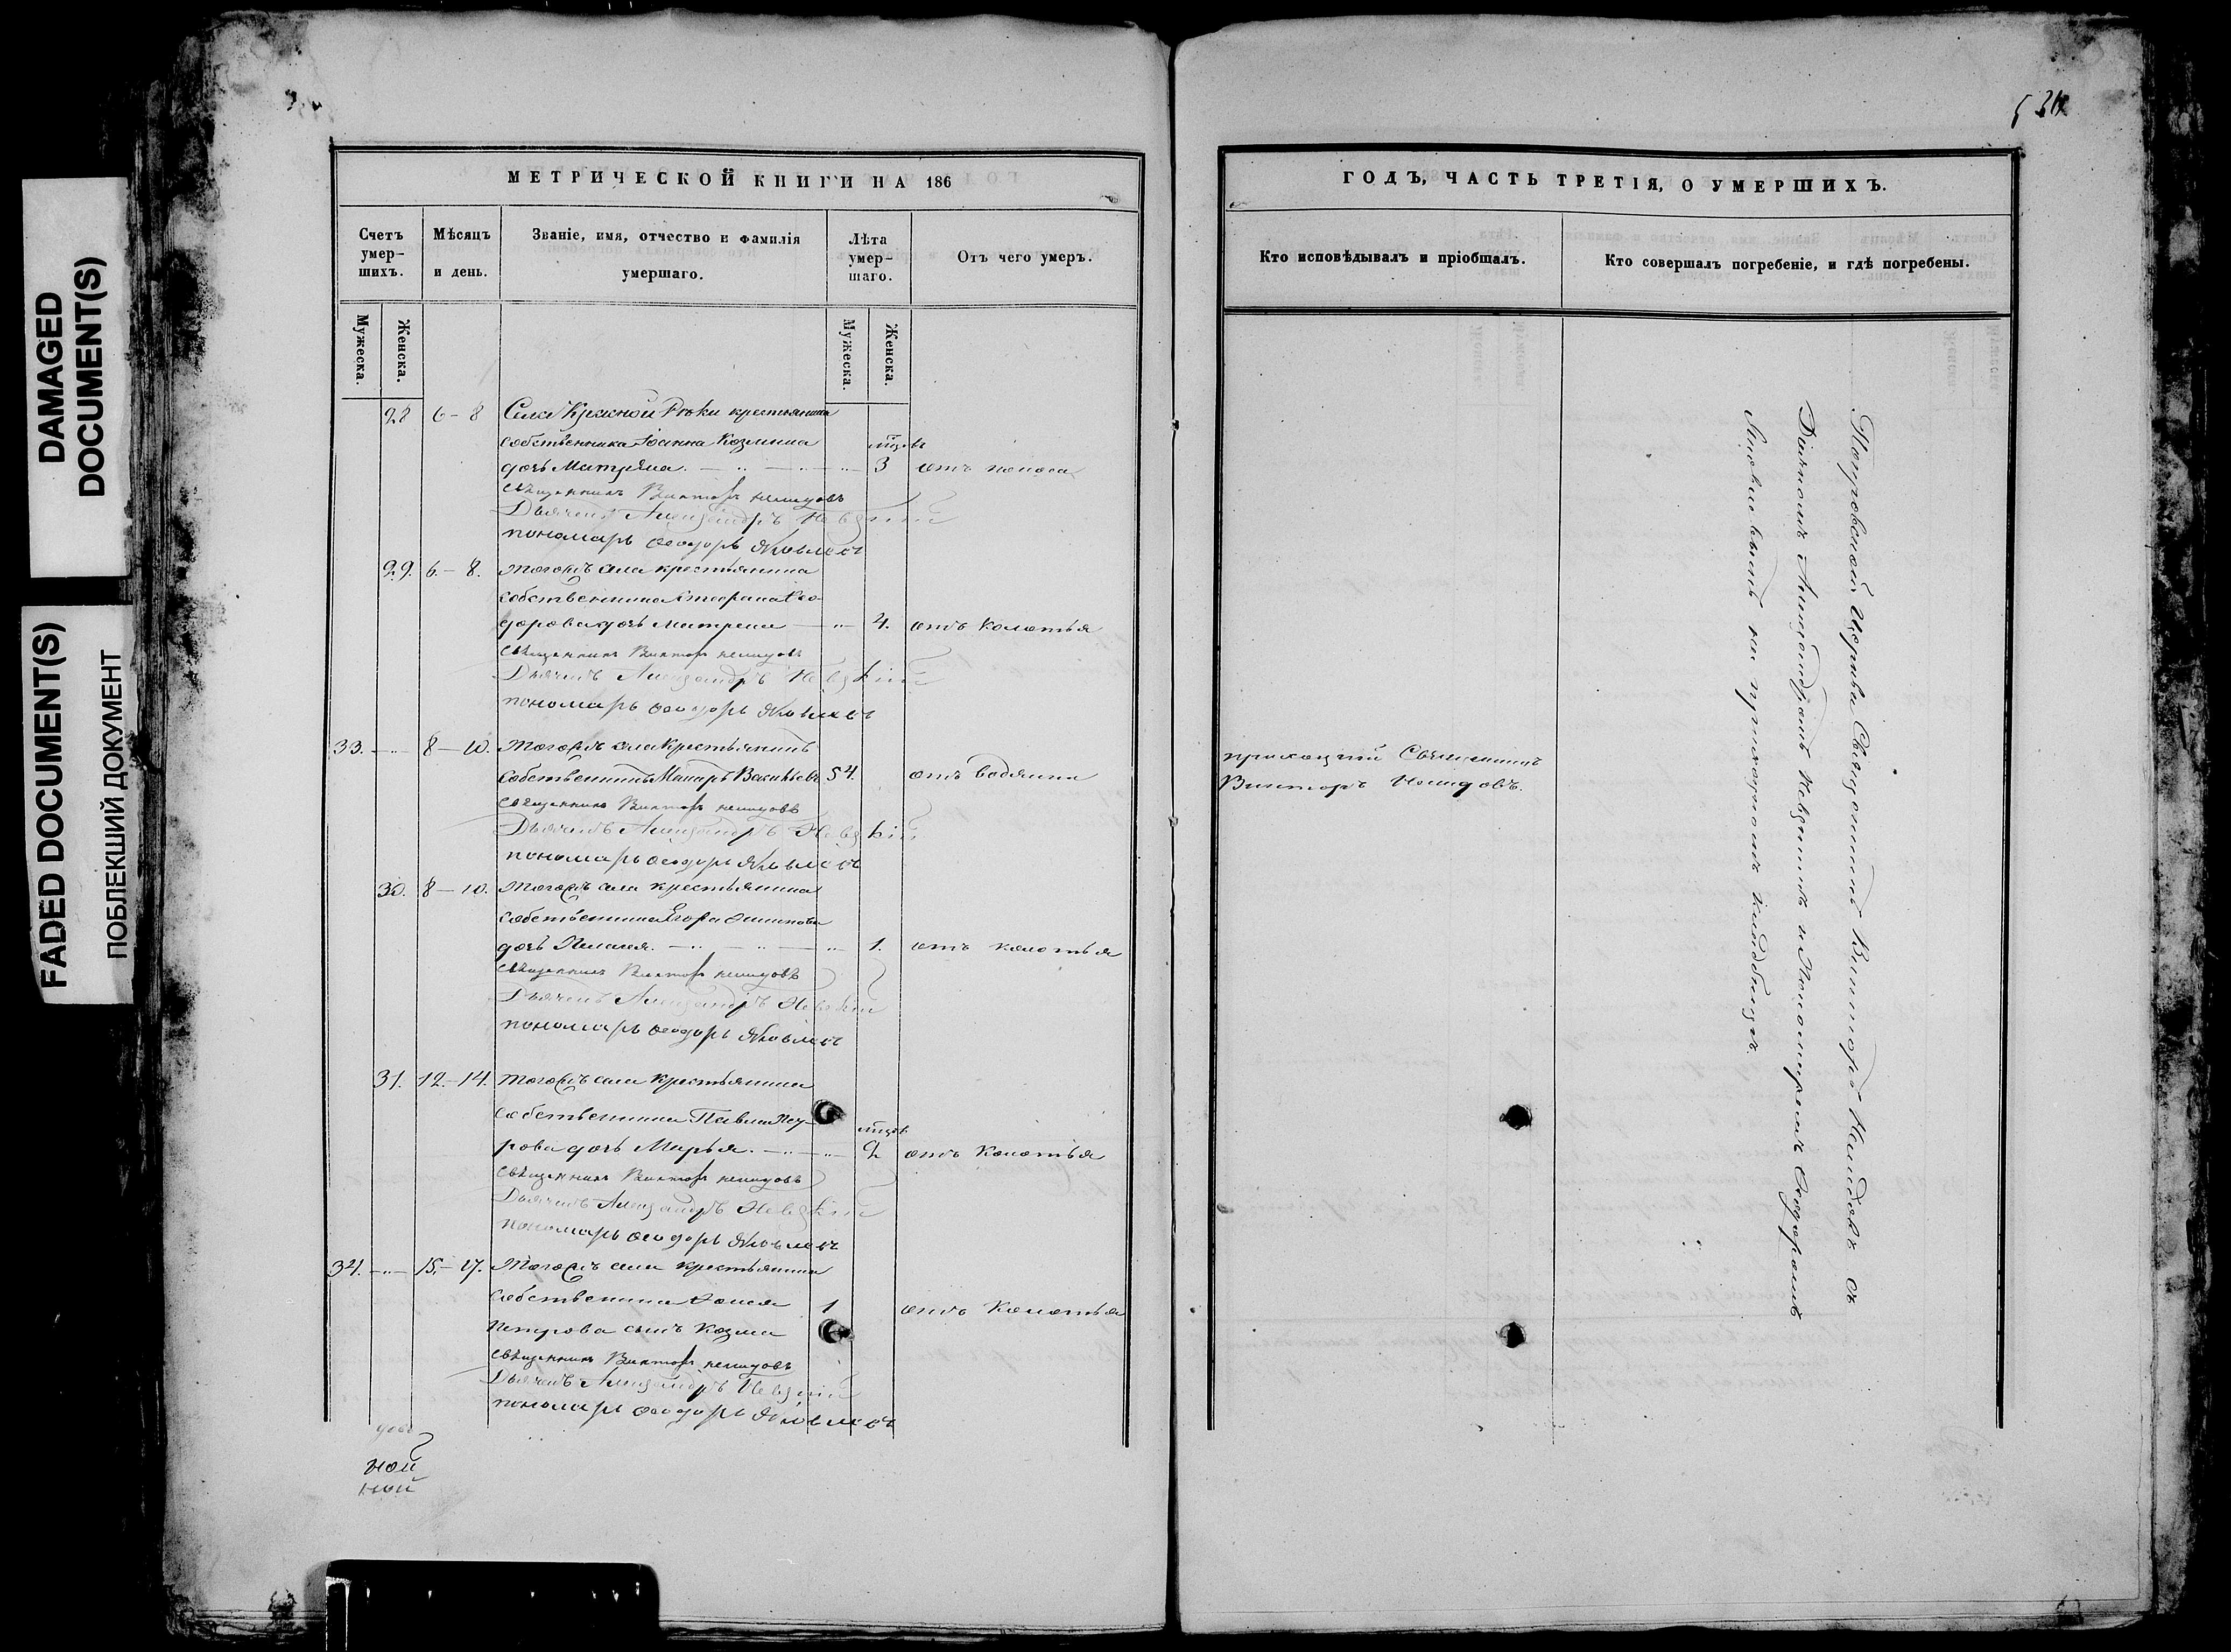 DAMAGED
DOCUMENT(S)
FADED DOCUMENT(S)
ПОБЛЕКШИЙ ДОКУМЕНТ
МЕТРИЧЕСКОЙ КНИГИ НА 186
Счетъ умер-шихъ.
Мѣсяцъ и день.
Званіе, имя, отчество и фамилія умершаго.
Лѣта умер-шаго.
Отъ чего умеръ.
Мужеска.
Женска.
Мужеска.
Женска.
28 6 – 8 Села Красной Рѣки крестьянина
собственника Іоанна Козмина мцовъ
дочь Матрена. 3 отъ поноса
Священникъ Викторъ Немидовъ
Дьячекъ Александръ Невскій
пономарь Ѳеодоръ Яковлевъ
29. 6. – 8. Тогожъ села крестьянина
собственника Стефана Ѳео-
дорова дочь Матрена 4. отъ колотья
Священникъ Викторъ Немидовъ
Дьячекъ Александръ Невскій
пономарь Ѳеодоръ Яковлевъ
33. 8 – 10. Тогожъ села крестьянинъ
собственникъ Макаръ Васильевъ 54. отъ водянки
Священникъ Викторъ Немидовъ
Дьячекъ Александръ Невскій
пономарь Ѳеодоръ Яковлевъ
30. 8 – 10. Тогожъ села крестьянина
собственника Егора
дочь 1. отъ колотья
Священникъ Викторъ Немидовъ
Дьячекъ Александръ Невскій
пономарь Ѳеодоръ Яковлевъ
31. 12. – 14. Тогожъ села крестьянина
собственника Павла Пет-
рова дочь Марья. мцовъ 2 отъ колотья
Священникъ Викторъ Немидовъ
Дьячекъ Александръ Невскій
пономарь Ѳеодоръ Яковлевъ
34. 15. – 17. Тогожъ села крестьянина
собственника 1 отъ колотья
Петрова сынъ Козма
Священникъ Викторъ Немидовъ
Дьячекъ Александръ Невскій
пономарь Ѳеодоръ Яковлевъ
ной
ный
ГОДЪ, ЧАСТЬ ТРЕТІЯ, О УМЕРШИХЪ.
Кто исповѣдывалъ и пріобщалъ.
Кто совершалъ погребеніе, и гдѣ погребены.
приходскій Священникъ
Викторъ Немидовъ.
Покровской Церкви Священникъ Викторъ Немидовъ съ
Дьячкомъ Александромъ Невскимъ и Пономаремъ Ѳеодоромъ
Яковлевымъ на приходскомъ кладбищѣ.